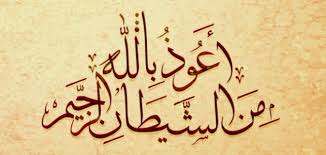 أَعُوذُ بِاللَّهِ
مِنَ الشَّيْطَانِ الرَّجِيْمِ